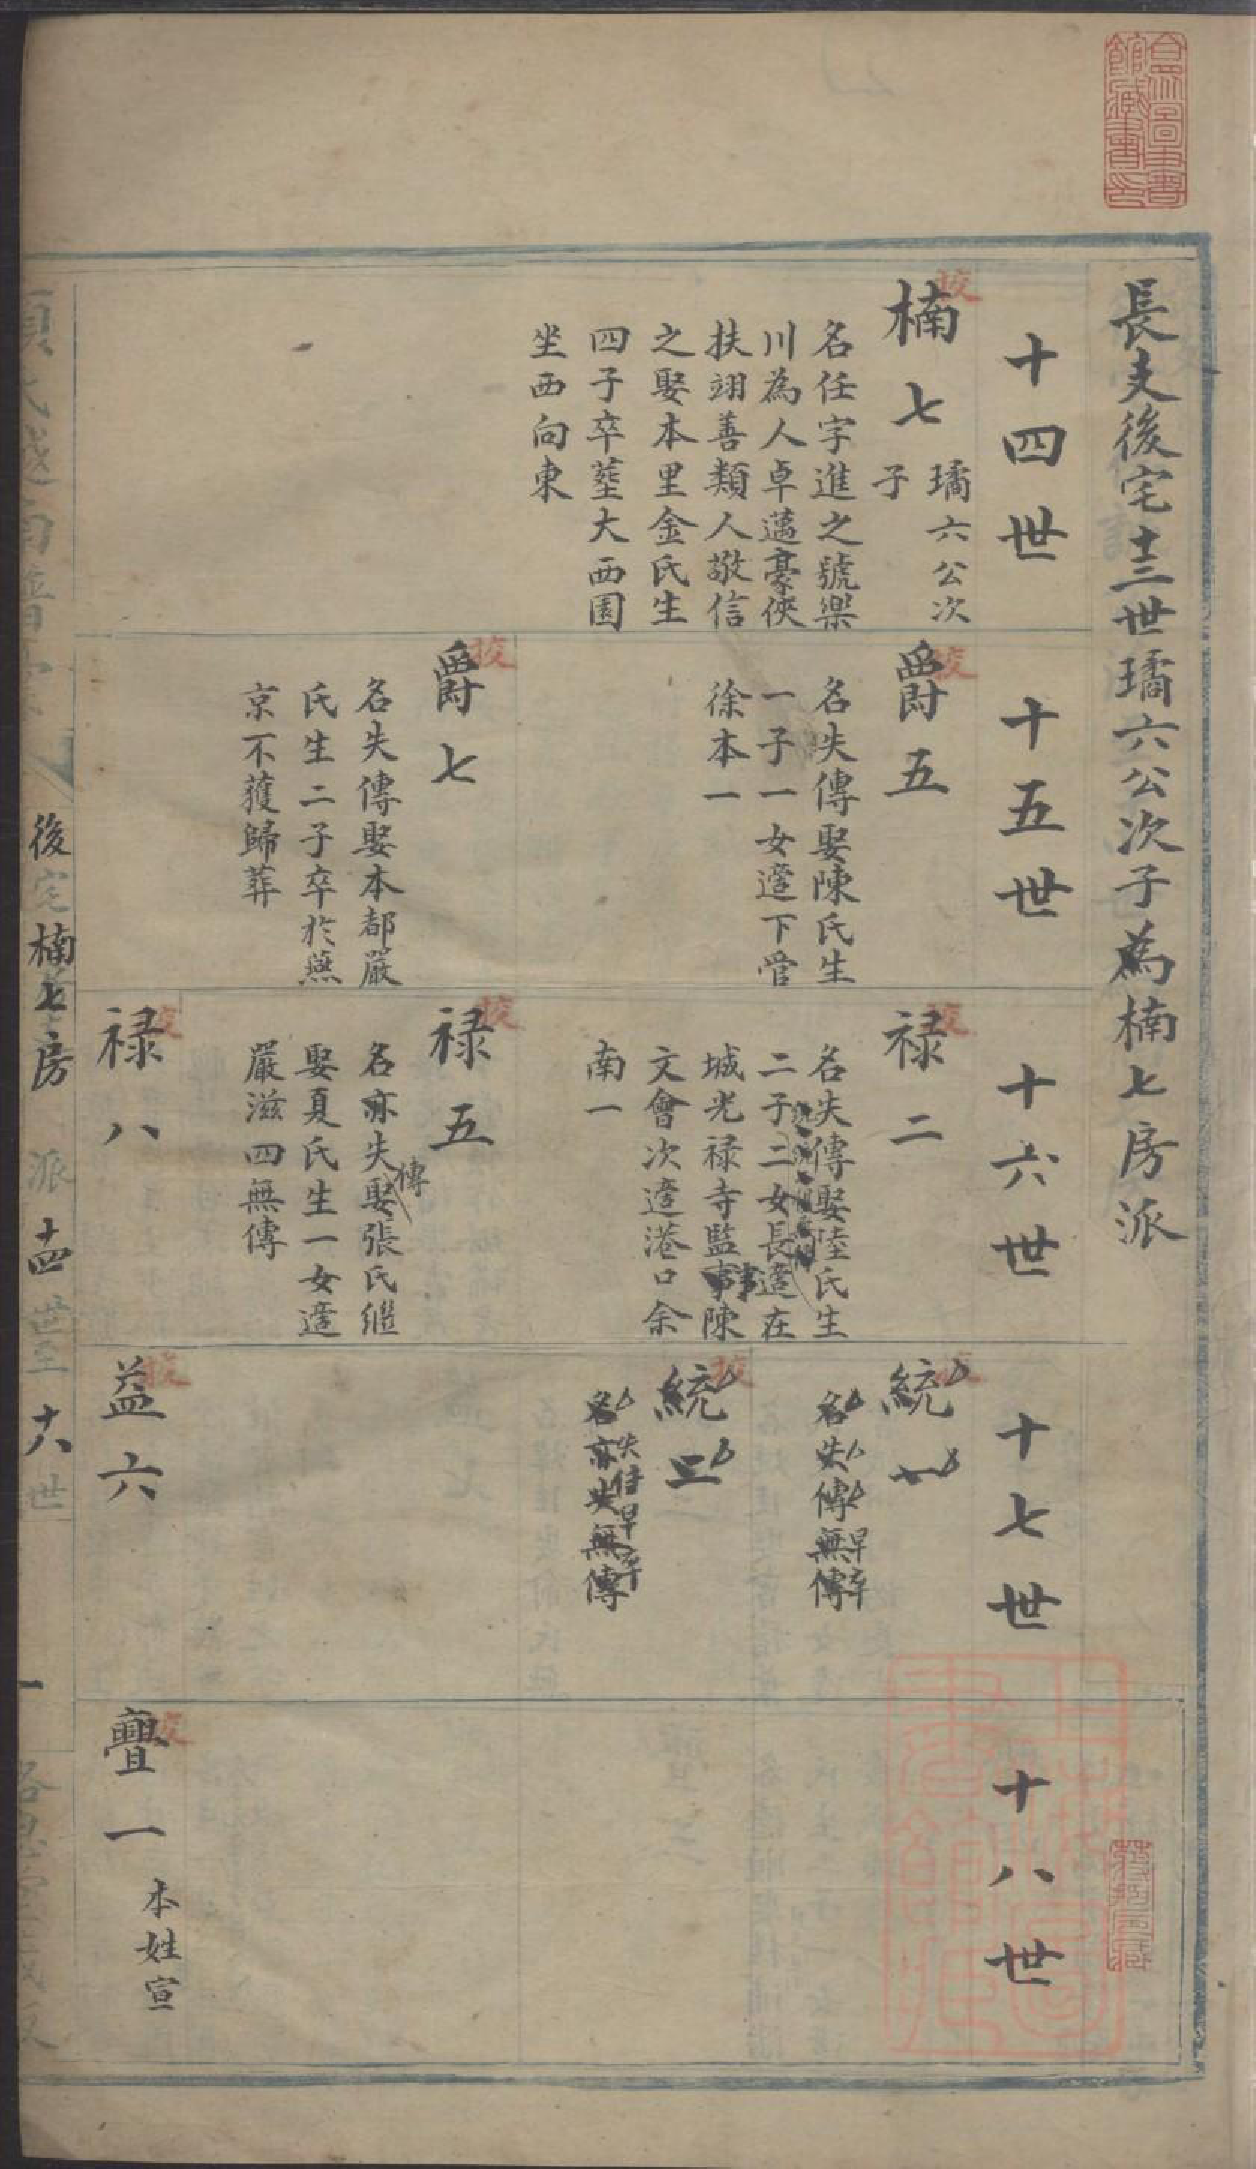 長支後宅十三世璚六公次子為楠七房派
十四世
楠七
璚六公次
子
名任字進之號樂
川為人卓邁豪俠
扶翊善類人敬信
之娶本里金氏生
四子卒塟大西園
坐西向東
十五世
爵五
名失傳娶陳氏生
一子一女適下管
徐本一
爵七
名失傳娶本都嚴
氏生二子卒於燕
京不獲歸葬
十六世
祿二
名失傳娶陸氏生
二子二女長適在
城光祿寺監事陳
文會次適港口余
南一
祿五
名亦失傳娶張氏繼
娶夏氏生一女適
嚴滋四無傳
祿八
十七世
統一
名失傳早卒無傳
統三
名亦失傳早卒無傳
益六
十八世
亹一
本姓宣
後宅楠七房派十四世至十八世
一